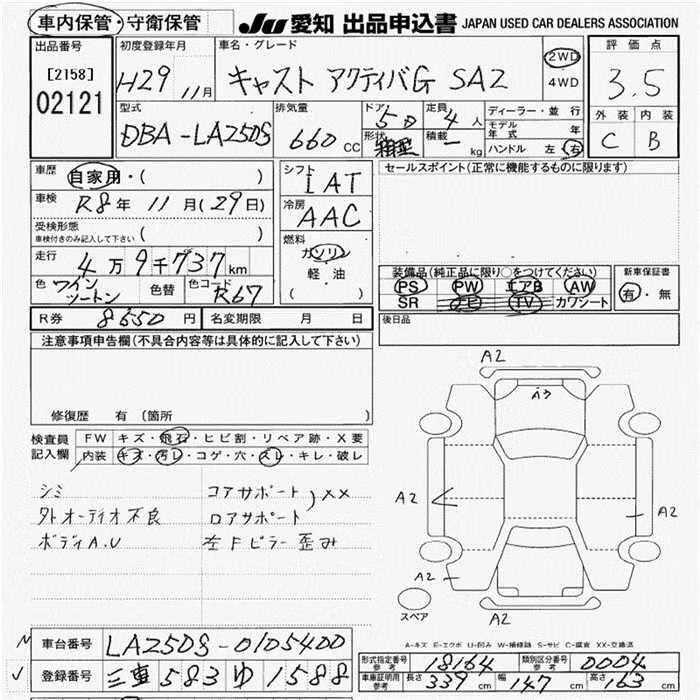 車内保管・守衛保管
JU 愛知 出品申込書 JAPAN USED CAR DEALERS ASSOCIATION
出品番号
[2158]
02121
初度登録年月
H29 11月
車名・グレード
キャスト アクティバG SA2
2WD
4WD
評価点
3.5
外装 内装
C B
型式
DBA-LA250S
排気量
660 CC
ドア 5D
形状 箱型
定員 4人
積載 - kg
ディーラー・並行
モデル年式 年
ハンドル 左 右
車歴
自家用・( )
車検
R8年 11月(29日)
受検形態
車検付きのみ記入して下さい ( )
走行
4万9千737km
色 ワイン ツートン
色替
色コード R67
シフト
IAT
冷房
AAC
燃料
ガソリン
軽・油
( )
セールスポイント(正常に機能するものに限ります)
装備品(純正品に限り○をつけてください)
PS PW エアB AW
SR ナビ TV カワシート
新車保証書
有・無
R券 8550円
名変期限 月 日
後日品
注意事項申告欄(不具合内容等は具体的に記入して下さい)
修復歴 有(箇所 )
検査員記入欄
FW キズ・飛石・ヒビ割・リペア跡・X要
内装 キズ・汚レ・コゲ・穴・スレ・キレ・破レ
シミ
コアサポート, XX
外オーディオ不良
ロアサポート
ボディA.U
左Fピラー歪み
A2
A3
A2
A2
A2
A2
スペア
A-キズ E-エクボ U-凹み W-補修跡 S-サビ C-腐食 XX-交換済
車台番号 LA250S-0105400
登録番号 三重 583 ゆ 1588
型式指定番号 参考 18164
類別区分番号 参考 0004
車庫証明用 参考 長さ 339 cm 幅 147 cm 高さ 163 cm